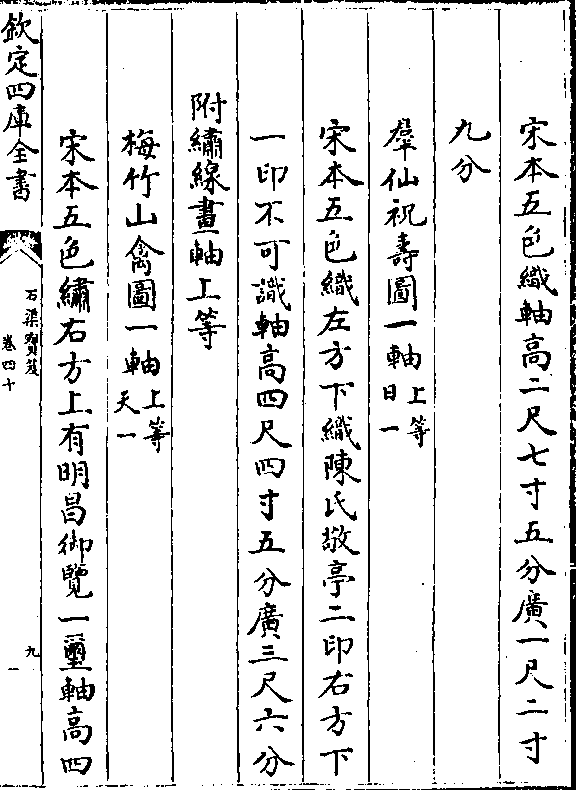 宋本五色織軸髙二尺七寸五分廣一尺二寸
九分
羣仙祝壽圖一軸上等日一
宋本五色織左方下織陳氏敬亭二印右方下
一印不可識軸髙四尺四寸五分廣三尺六分
附繡線畫軸上等
梅竹山禽圖一軸上等天一
宋本五色繡右方上有明昌御覽一璽軸髙四
欽定四庫全書
石渠寳笈
卷四十
九